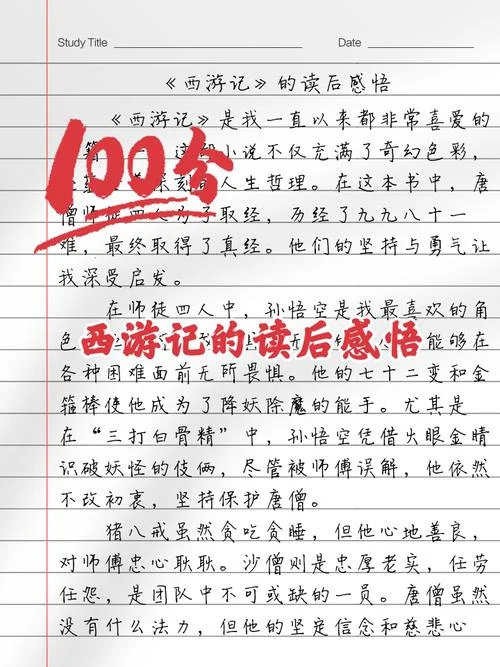 Study Title
Date
《西游记》的读后感悟
《西游记》是我一直以来都非常喜爱的
100分
小说不仅充满了奇幻色彩，
深刻 人生哲理。在这本书中，唐
僧师徒四人为了取经，历经了九九八十一
难，最终取得了真经。他们的坚持与勇气让
我深受启发。
在师徒四人中，孙悟空是我最喜欢的角
西游记的读后感悟
色 能够在
各种困难面前无所畏惧。他的七十二变和金
箍棒使他成为了降妖除魔的能手。尤其是
在“三打白骨精”中，孙悟空凭借火眼金睛
识破妖怪的伎俩，尽管被师傅误解，他依然
不改初衷，坚持保护唐僧。
猪八戒虽然贪吃贪睡，但他心地善良，
对师傅忠心耿耿。沙僧则是忠厚老实，任劳
任怨，是团队中不可或缺的一员。唐僧虽然
没有什么法力，但他的坚定信念和慈悲心